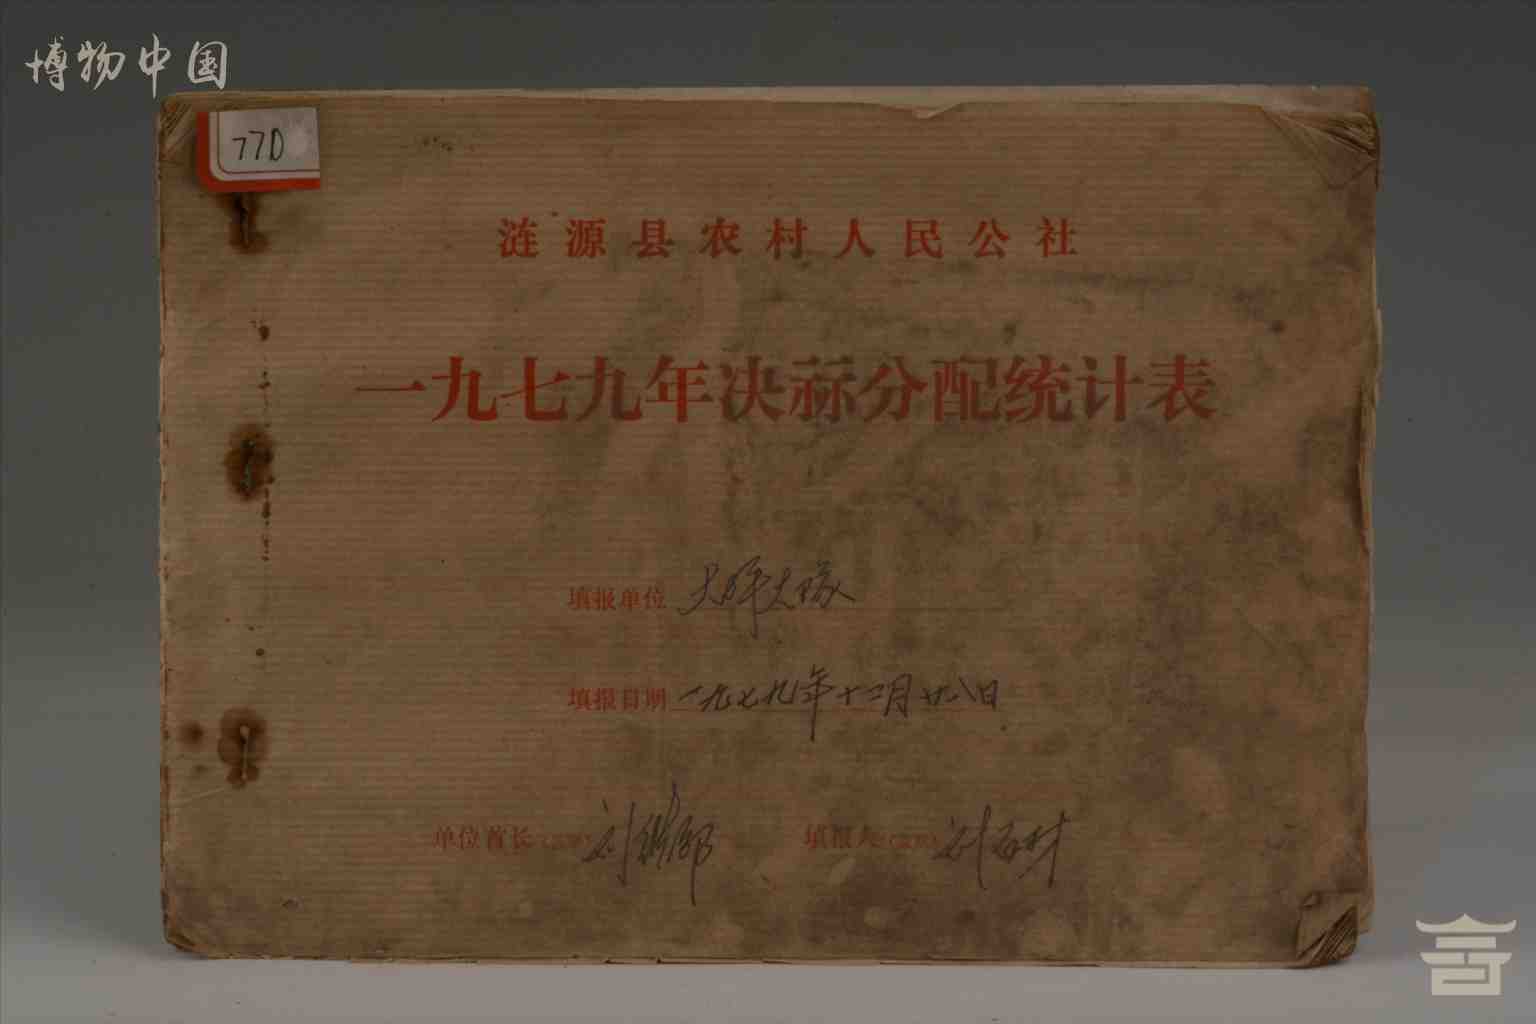 博物中国
770
涟源县农村人民公社
一九七九年决祘分配统计表
填报单位 大坪大队
填报日期 一九七九年十二月廿八日
单位首长 刘
填报人 刘